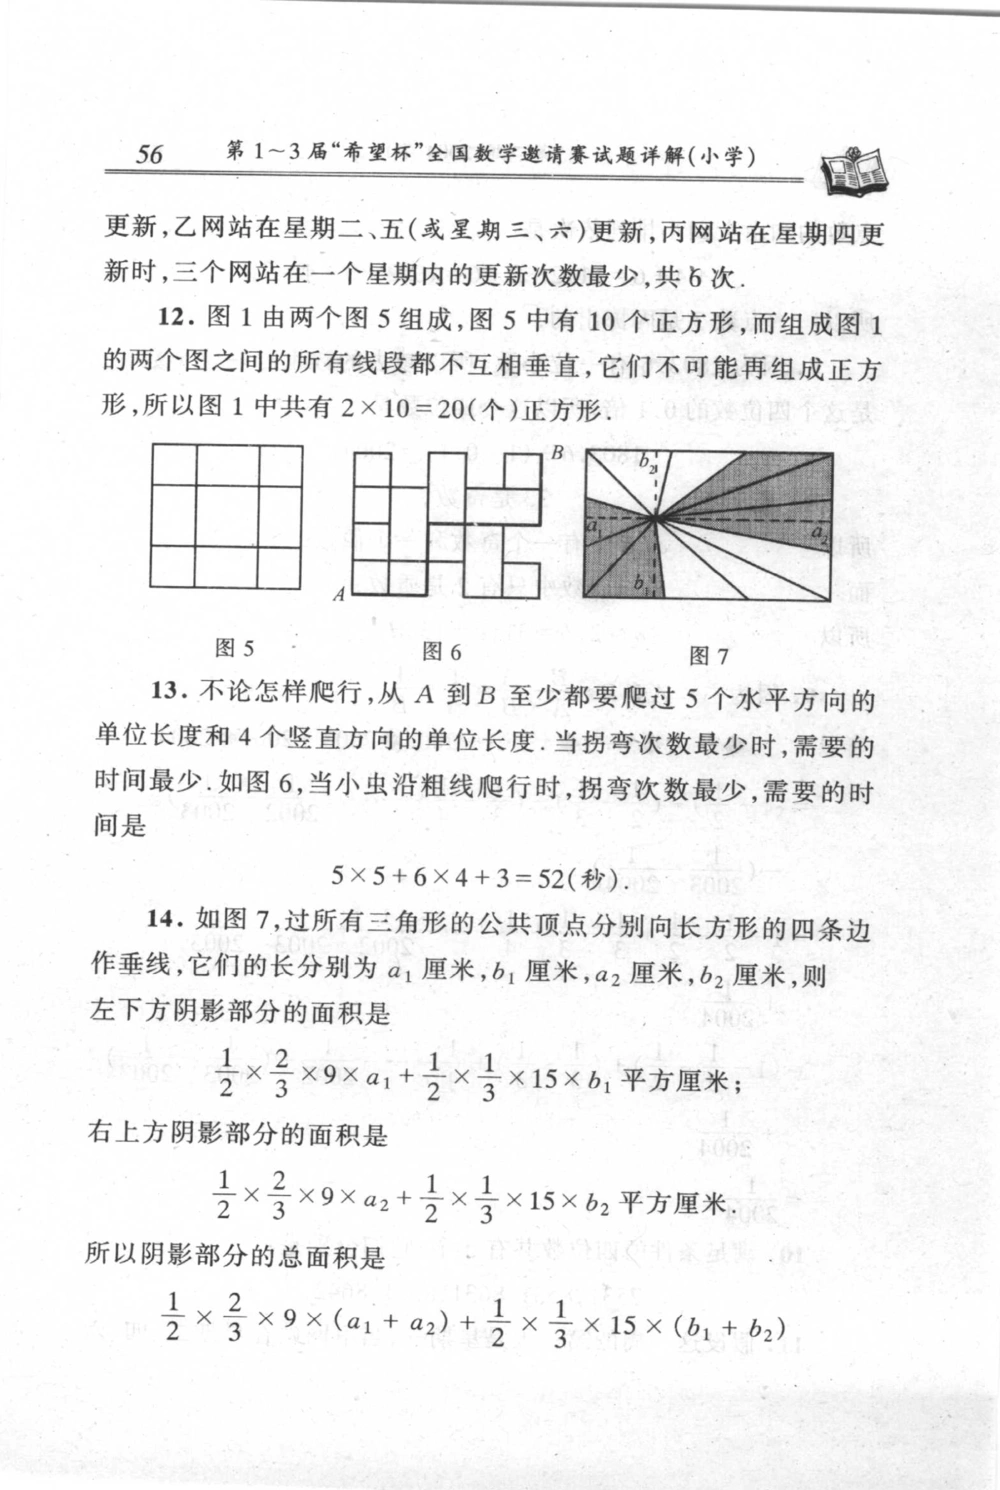 56 第1~3届“希望杯”全国数学邀请赛试题详解(小学)
更新,乙网站在星期二、五(或星期三、六)更新,丙网站在星期四更
新时,三个网站在一个星期内的更新次数最少,共6次.
12. 图1由两个图5组成,图5中有10个正方形,而组成图1
的两个图之间的所有线段都不互相垂直,它们不可能再组成正方
形,所以图1中共有2×10=20(个)正方形.
A
B
a₁
b₂
a₂
b₁
图5
图6
图7
13. 不论怎样爬行,从A到B至少都要爬过5个水平方向的
单位长度和4个竖直方向的单位长度.当拐弯次数最少时,需要的
时间最少.如图6,当小虫沿粗线爬行时,拐弯次数最少,需要的时
间是
5×5+6×4+3=52(秒).
14. 如图7,过所有三角形的公共顶点分别向长方形的四条边
作垂线,它们的长分别为a₁厘米,b₁厘米,a₂厘米,b₂厘米,则
左下方阴影部分的面积是
1/2×2/3×9×a₁+1/2×1/3×15×b₁平方厘米;
右上方阴影部分的面积是
1/2×2/3×9×a₂+1/2×1/3×15×b₂平方厘米.
所以阴影部分的总面积是
1/2×2/3×9×(a₁+a₂)+1/2×1/3×15×(b₁+b₂)